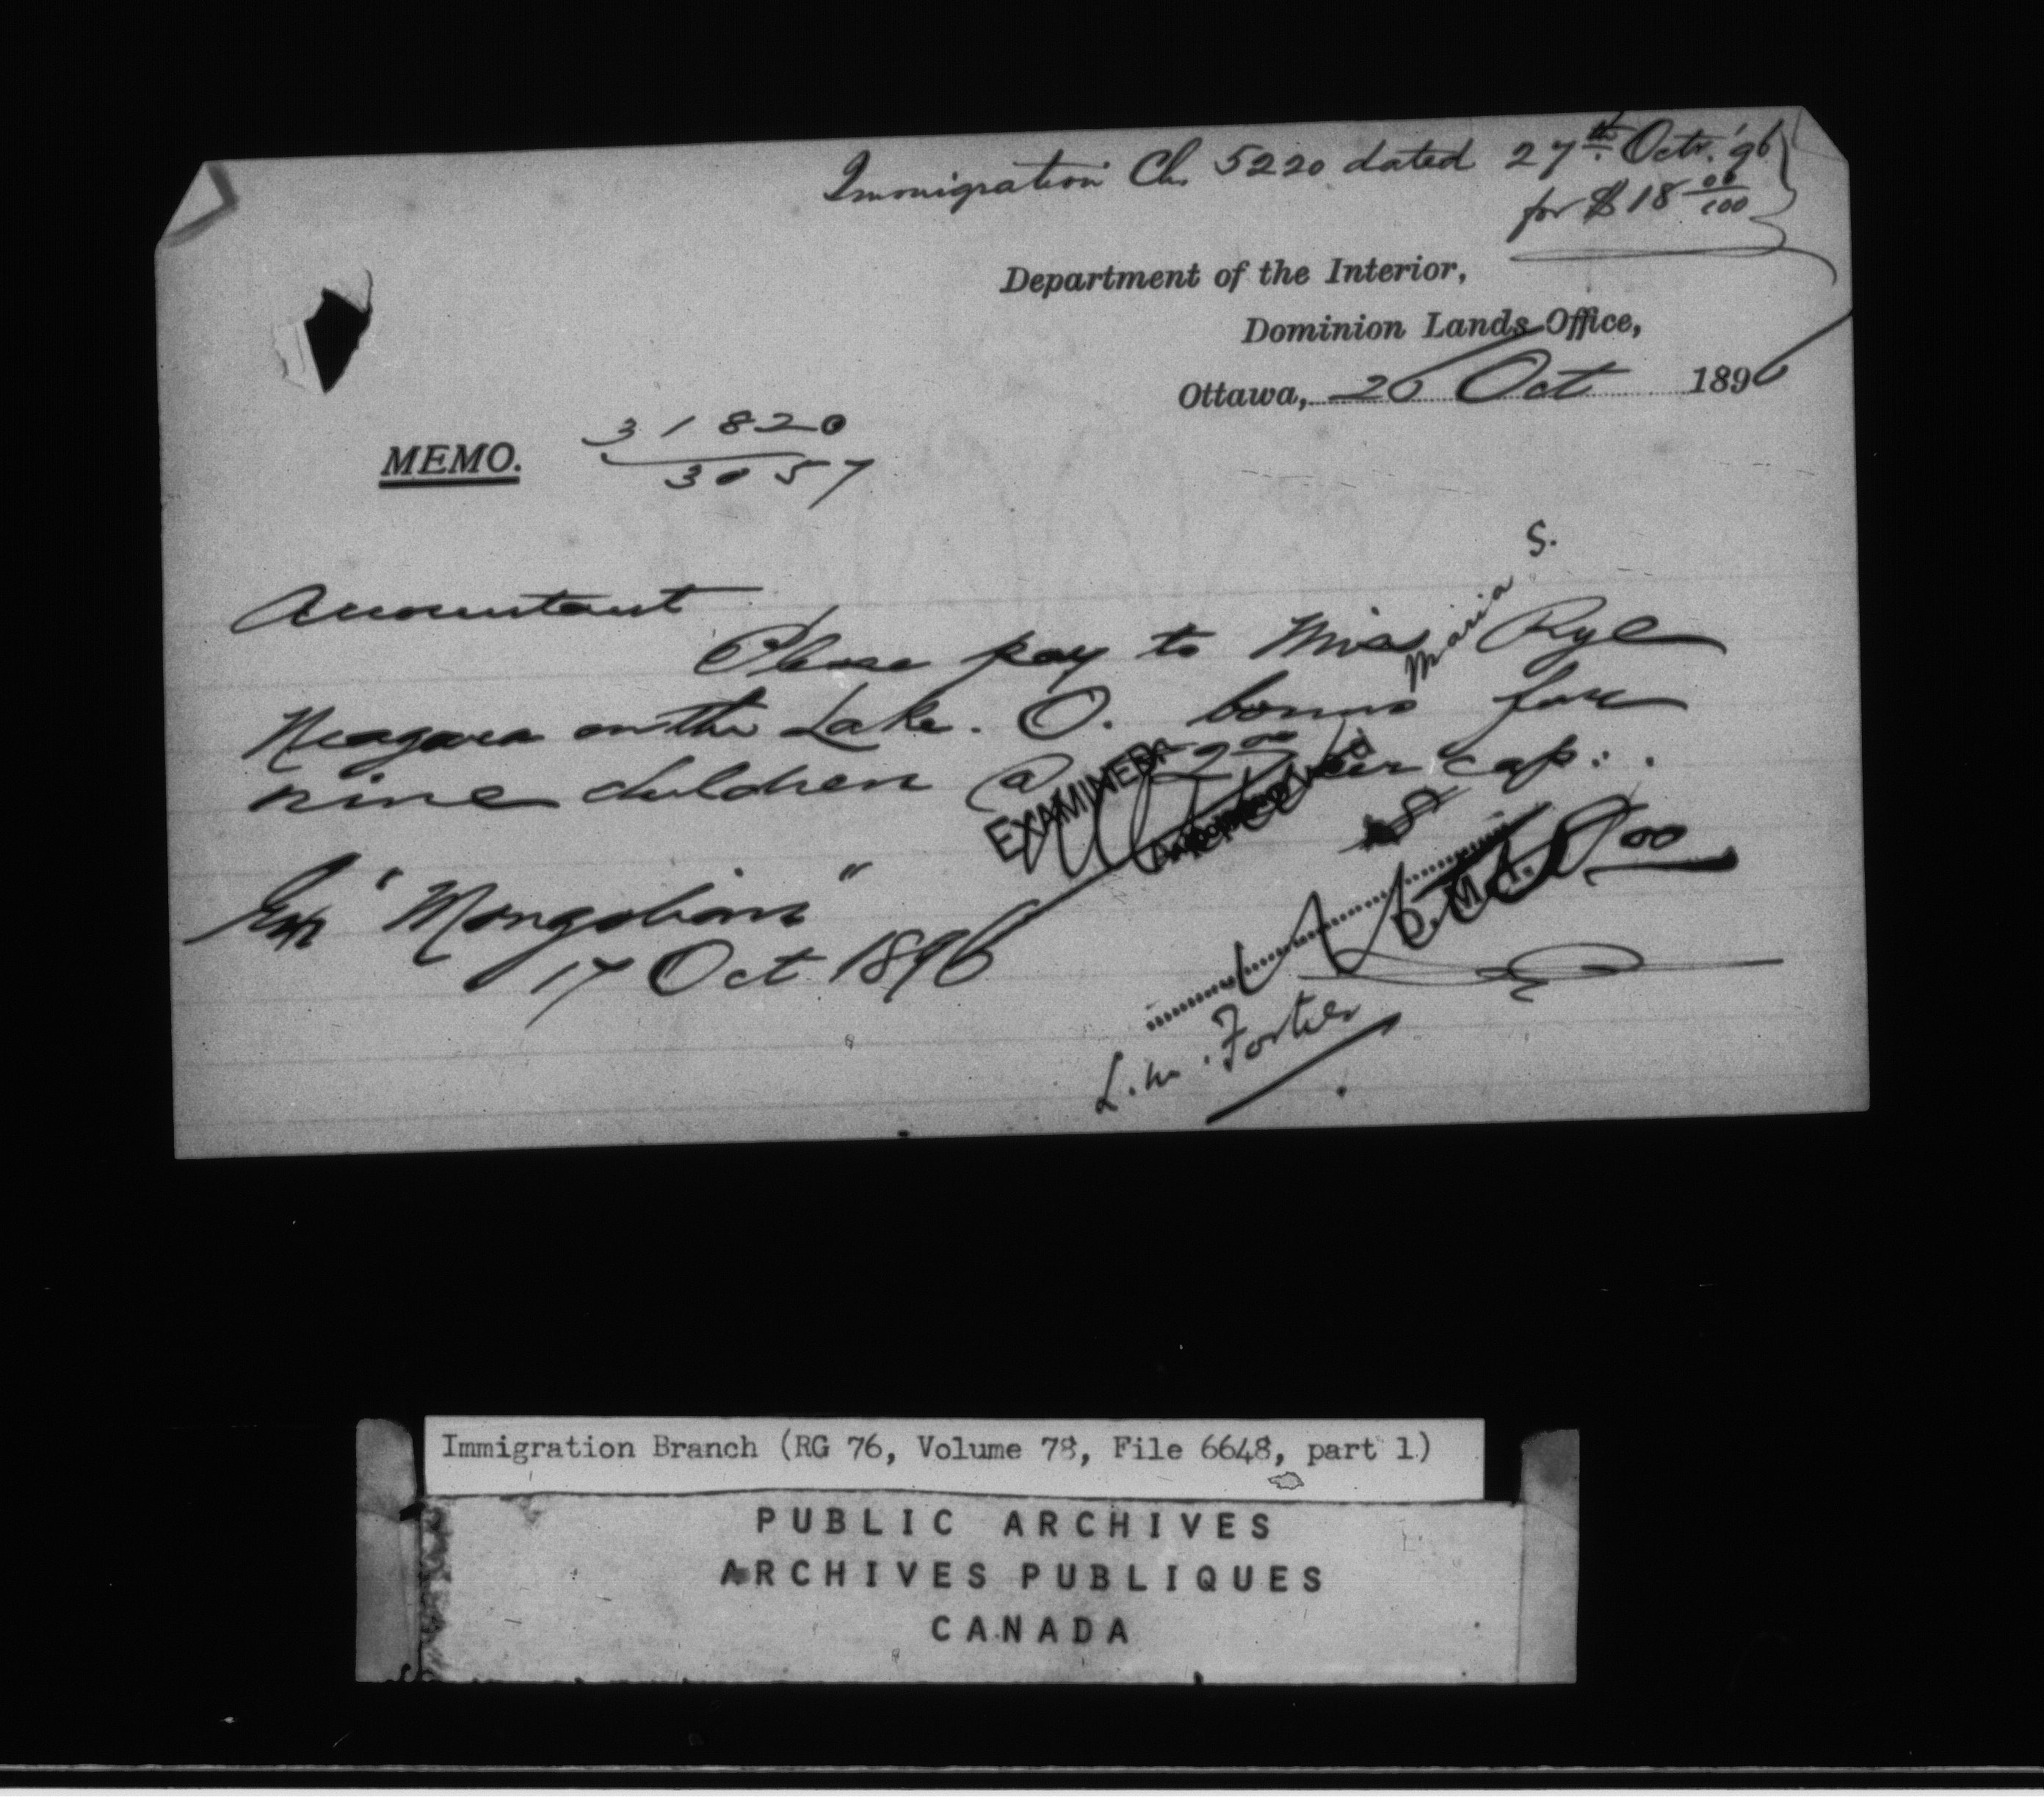 Immigration Ch. 5220 dated 27th Octr. '96
for $18 00/100
Department of the Interior,
Dominion Lands Office,
Ottawa, 26 Oct 1896
MEMO.
31820
3057
Accountant
Please pay to Miss Maria S. Rye
Niagara on the Lake. O. bonus for
nine children @ $2.00 per cap:.
EXAMINED
$18.00
Ex "Mongolian"
17 Oct 1896
L. M. Fortier
Immigration Branch (RG 76, Volume 78, File 6648, part 1)
PUBLIC ARCHIVES
ARCHIVES PUBLIQUES
CANADA